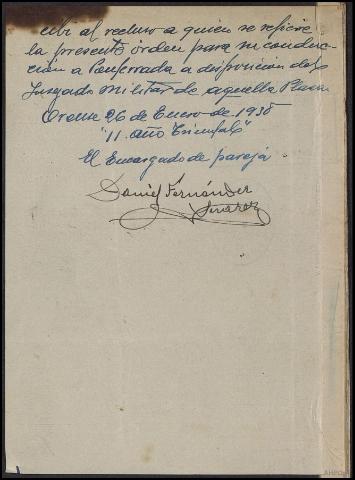 cibí al recluso a quien se refiere
la presente orden para su conduc-
ción a Ponferrada a disposicion del
Juzgado Militar de aquella Plaza
Orense 26 de Enero de 1938
"II año Triunfal"
El Encargado de pareja
Daniel Fernández
Suarez